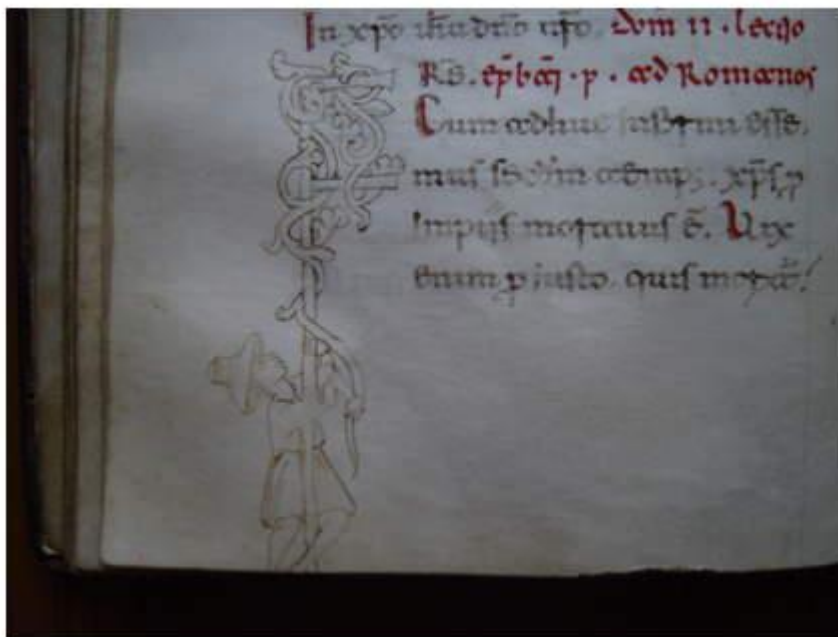 In xp̄o ih̄u dn̄o nr̄o. dom̄ II. lectio
ad Romanos
Cum adhuc infirmi esse
mus temp;. xp̄s. p
Impiis mortuus ē. Vix
enim p iusto. quis